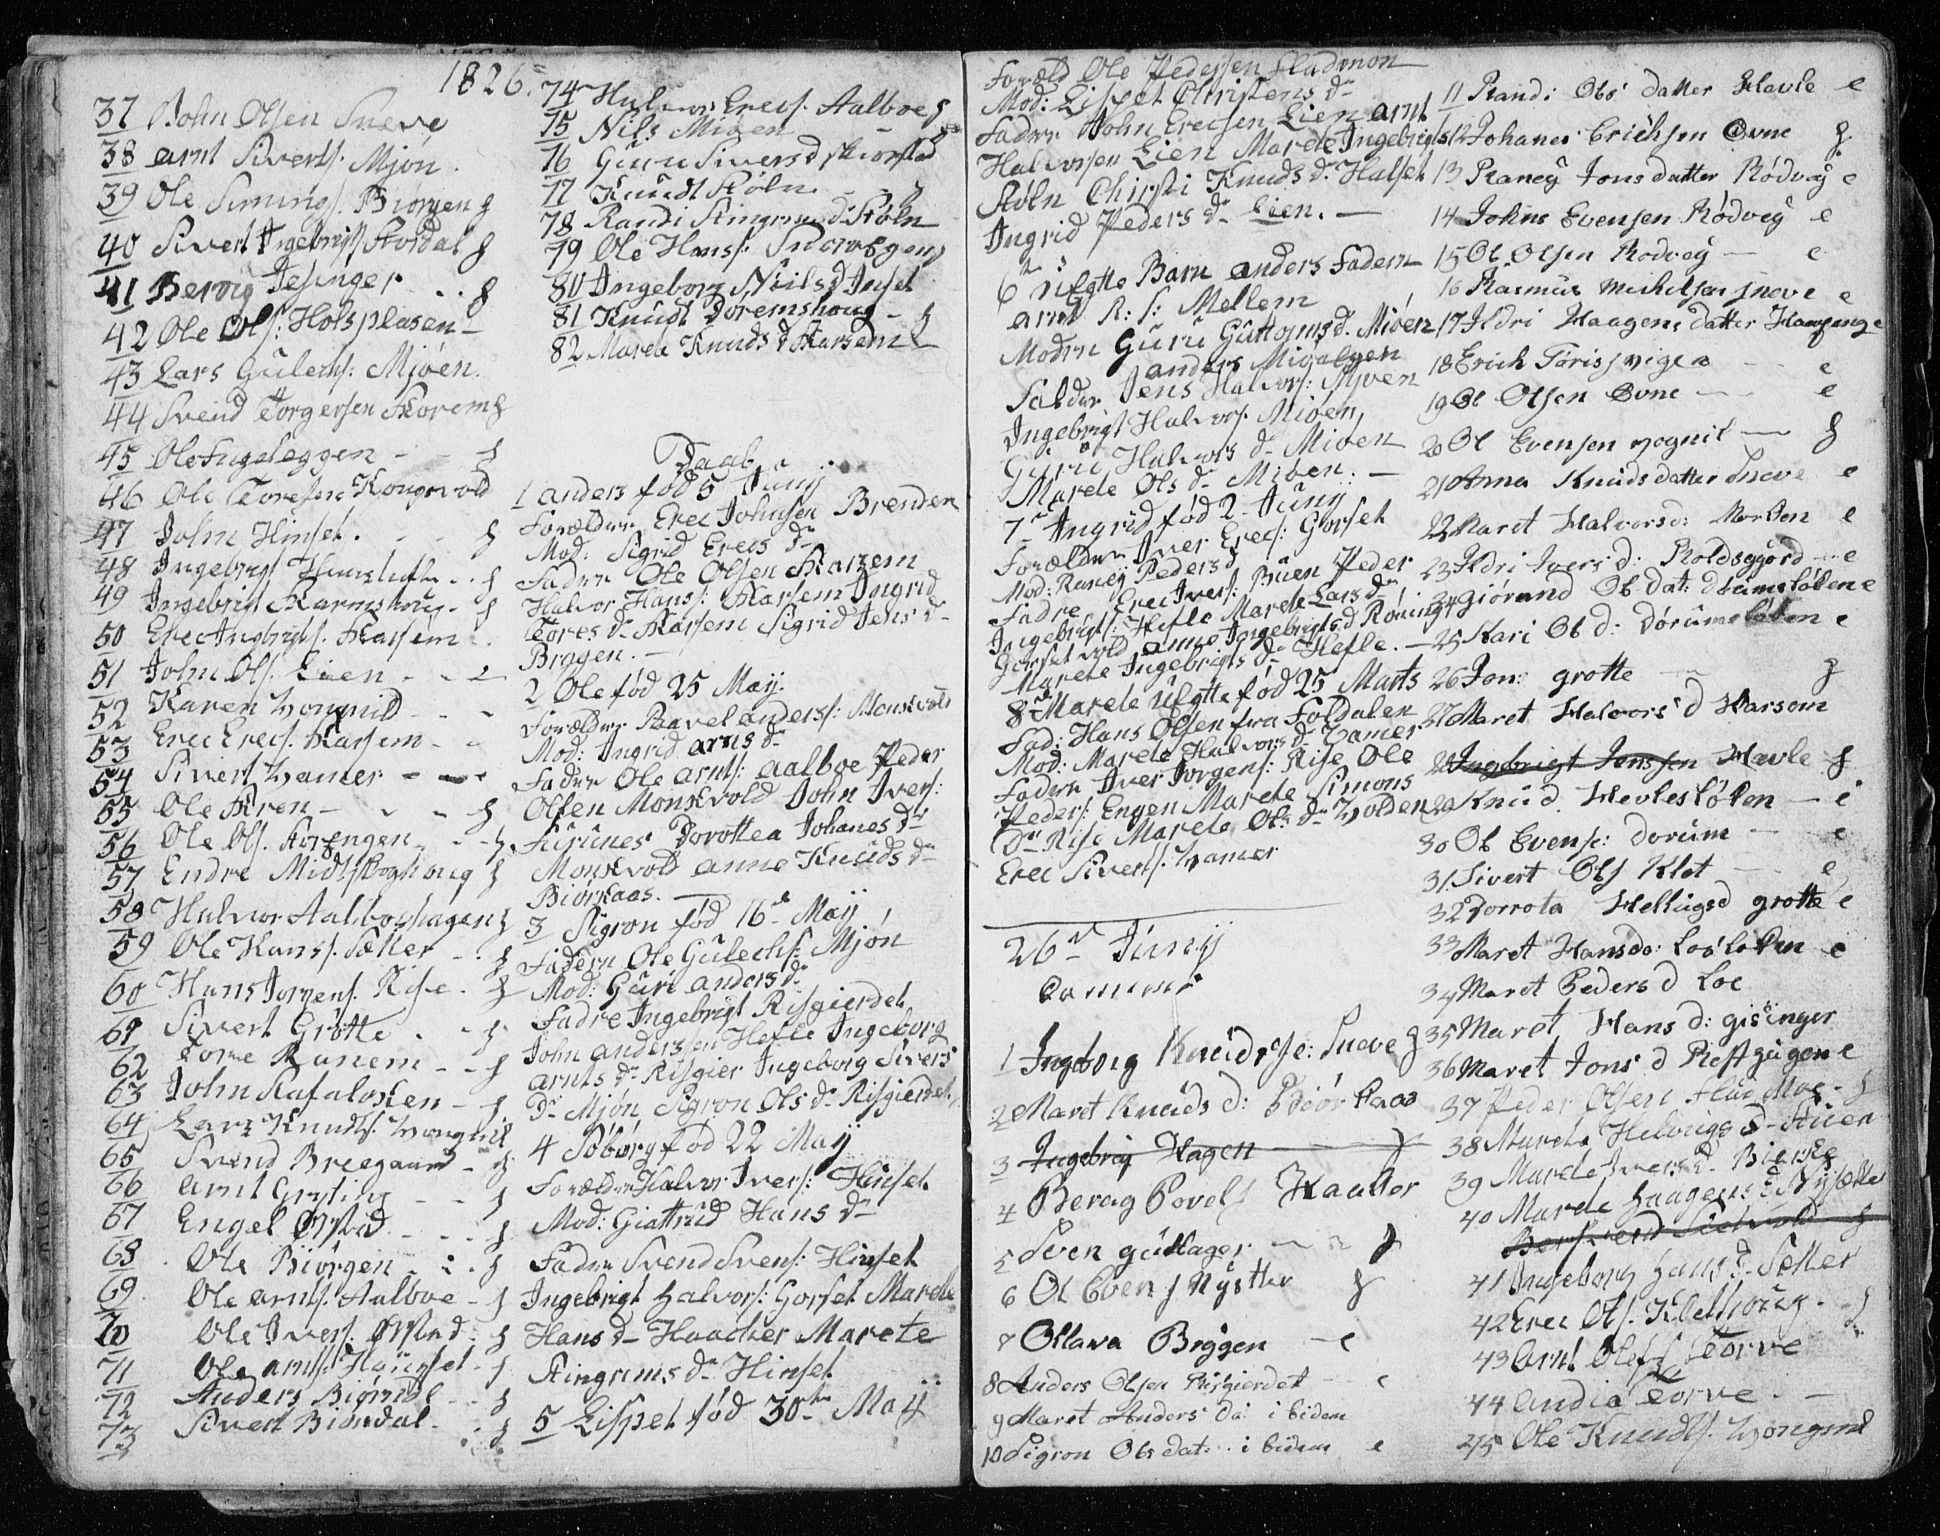 1826
37 John Olsen Sneve
38 Arnt Siverts: Mjøn
39 Ole Simings: Biørgen g
40 Sivert Ingebrigts Stordal g
41 Bervig Jesinger - . g
42 Ole Ols: Holsplasen -
43 Lars Gulechs: Mjøen.
44 Svend Torgersen Storem g
45 Ole Fugeleggen - - g
46 Ole Toresen Kongsvold
47 John Hinset. - - g
48 Ingebrigt
49 Ingebrigt
50 Erec Ingebrigts. Harsem
51 John Ols. Lien - - e
52 Karen Vognild - -
53 Erec Erecs. Harsem - -
54 Sivert Vamer - - -
55 Ole Kren - - - g
56 Ole Ols.
57 Endre Midtskoghoug g
58 Halvor Aalboehagen g
59 Ole Hans: Sætter - g
60 Hans Jorgens. Rise - g
61 Sivert Grøtte . - g
62 Tore Ranem - - g
63 John Rafaloken - g
64 Lars Knuds: Vongnil
65 Svend Breegaard - g
66 Arnt Gryting - - g
67 Engel Ørstad - - g
68 Ole Biørgen - : g
69 Ole Arnts. Aalboe - g
70 Ole Ivers. Ørstad . g
71 Ole Arnts. Haunset - g
72 Anders Biørndal - - g
73 Sivert Biørndal - g
74 Halvor Erecs. Aalboe g
75 Nils Mioen - g
76 Guru Sivers d Skiorstad
77 Knudt Støln - - g
78 Randi Stingrims d: Støln
79 Ole Hans: Snorvegen g
80 Ingeborg Nils d Insel
81 Knudt Doremshoug - g
82 Marete Knuds d Harsem
Daab
1 Anders fød 5 Juny
Forældre Erec Johnsen Brenden
Mod: Sigrid Erecs dr
Faddre Ole Olsen Harzem
Halvor Hans: Harsem Ingrid
Tores dr Harsem Sigrid Jens dr
Bryggen. -
2 Ole fød 25 May.
Forældre Paavel Anders: Monsvold
Mod: Ingrid Arns dr
Faddre Ole Arnts: Aalboe Peder
Olsen Monsvold John Ivers:
Furunes Dorottea Johanes dr
Monsvold Anne Knuds dr
Biørkaas. -
3 Sigron fød 16de May
Fadern Ole Gulechs: Mjøn
Mod: Guri Anders dr
Fadre Ingebrigt Risgierdet
John Anderssen Hefle Ingeborg
Arnts dr Risgier Ingeborg Sivers
dr Mjøn Sigron Ols dr Risgierdet
4 Søborg fød 22 May
Forældre Halvor Ivers: Hinset
Mod: Giattrud Hans dr
Faddre Svend Svens: Hinset
Ingebrigt Halvors: Gorset Marete
Hans dr Haacker Marete
Stingrems dr Hinset
5 Lispet fød 30te May
Foræld Ole Pedersen Fladmon
Mod: Lispet Christens dr
Faddre John Erecsen Lien Arnt
Halvorsen Lien Marete Ingebrigts
Støln Chirsti Knuds dr Halset
Ingrid Peders dr Lien. -
6 Uegtte Barn Anders Fadern
Arnt R: S: Mellem
Modrn Guru Guttorms d. Mioen
Anders Mioalgen
Faddre Jens Halvors: Mjoen
Ingebrigt Halvors. Mioen,
Guru Halvors dr Mioen
Marete Ols dr Mioen. -
7 Ingrid fød 2 Juny
Forældre Iver Erecs: Gorset
Mod: Raney Peders d
Fadre Erec Ivers: Buen Peder
Ingebrigts: Hefle Marete Lars dr
Gorsetvold Anne Ingebrigts d Røning
Marete Ingebrigts dr Hefle. -
8 Marete Uegtte fød 25 Marts
Fad: Hans Olsen fra Foldalen
Mod: Marete Halvors dr Vamer
Faddre Iver Jorgens: Rise Ole
Peders: Engen Marete Simons
dr Rise Marete Ols dr Volden
Erec Siverts. Vamer
26de Juny
Comuni
1 Ingeborg Knuds Sneve g
2 Maret Knuds d: Biørkaas
3 Ingebrig Hagen g
4 Berag Povels Haaker
5 Sven Gulhager - g
6 Ol Evens Nystuen g
7 Ollava Bryggen - e
8 Anders Olsen Risgierdet - e
9 Maret Anders da: ibidem
10 Sigron Ols dat: ibidem e
11 Randi Ols datter Havle e
12 Johanes Erichsen Ovne g
13 Raney Jons datter Rødvey e
14 Johns Evensen Rødvey e
15 Ol Olsen Rodvey - e
16 Rasmus Michelsen Sneve e
17 Ildri Haagens datter Haugeng e
18 Erich Toris vigen - - e
19 Ol Olsen Ovne - - e
20 Ol Evensen Vognil - g
21 Anna Knuds datter Sneve e
22 Maret Halvors d: Morken e
23 Ildri Ivers d: Roldsgjord - e
24 Giørand Ols dat: Dørumsløken e
25 Kari Ols d: Dørumsløken e
26 Jon: Grotte - g
27 Maret Halvors d Harsom
28 Ingebrigt Jenssen Havle g
29 Knud Hevlesløken - e
30 Ol Evens: Dorum - e
31 Sivert Ols Klet - e
32 Dorrota Hellugs d Grotte e
33 Maret Hans da: Losloken e
34 Maret Peders d Loe
35 Maret Hans d: Gisinger
36 Maret Jons d Reftgugen e
37 Peder Olsen Fladmoe - g
38 Marete Helvigs d-
39 Marete Ivers d. Bierke
40 Marete Haagens d Nysetter
41 Ingeborg Hans d. Sætter
42 Erec Ols. Klethoug - g
43 Arnt Olefs Torve
44 Andia Torve - -
45 Ole Knuds. Vongnil